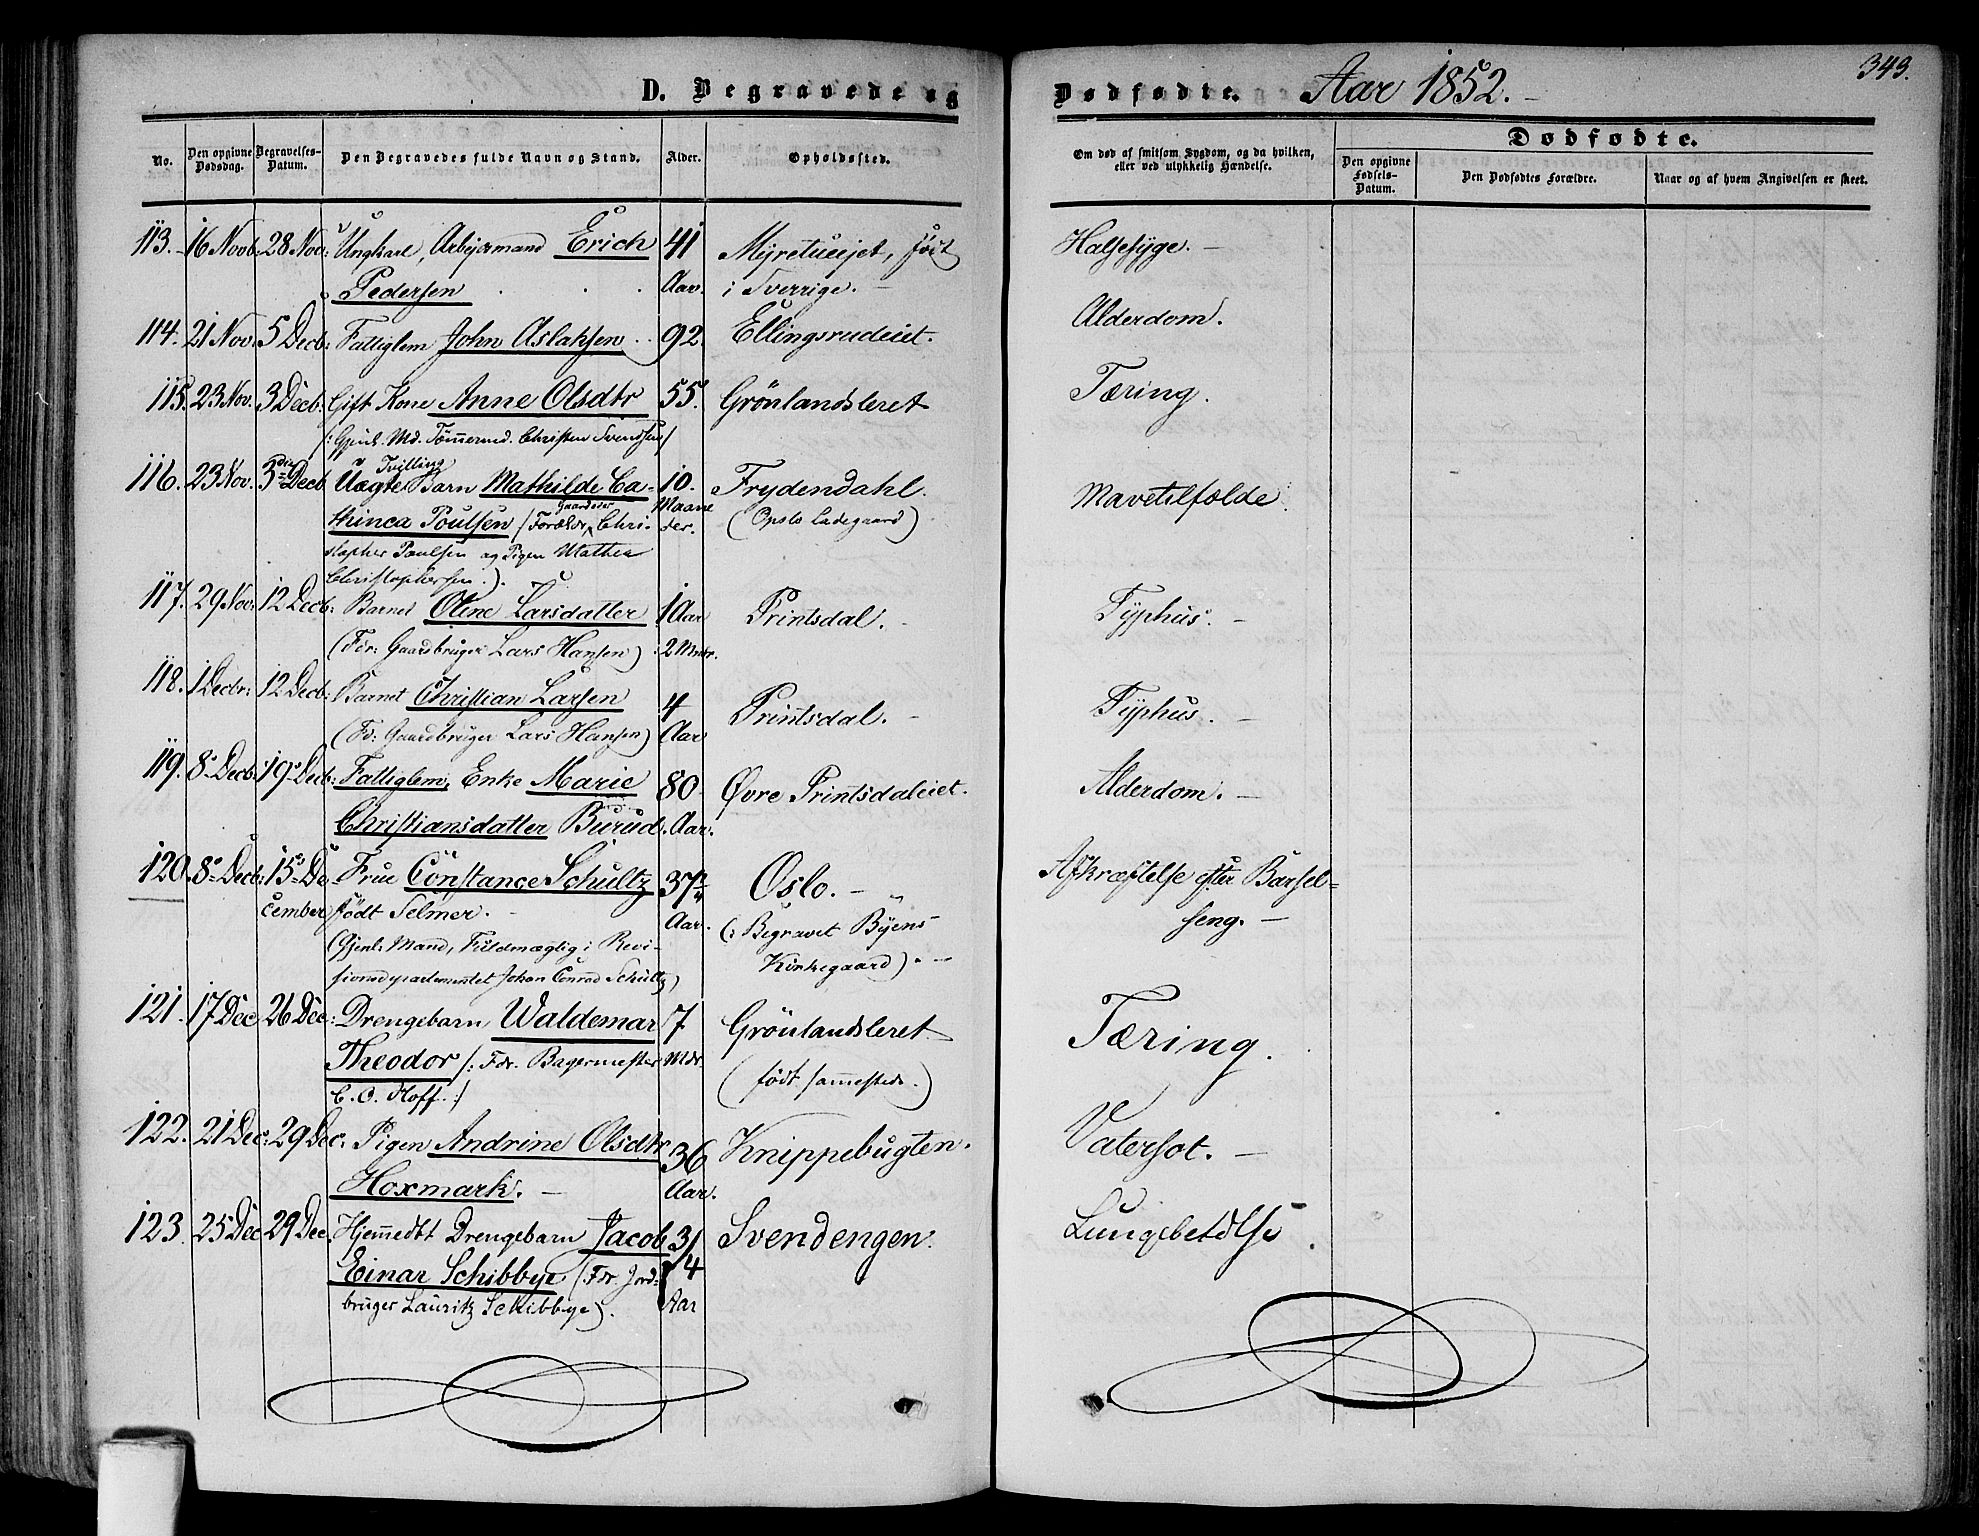 D. Begravede og
Dødfødte. Aar 1852.
343.
No.
Den opgivne Dødsdag.
Begravelses-Datum.
Den Begravedes fulde Navn og Stand.
Alder.
Opholdssted.
Om død af smitsom Sygdom, og da hvilken,
eller ved ulykkelig Hændelse.
Dødfødte.
Den opgivne Fødsels-Datum.
Den Dødfødtes Forældre.
Naar og af hvem Angivelsen er skeet.
113. 16 Novb: 28 Nov: Ungkarl, Arbejdsmand Erich 41 Myretuejet, født Halssyge. —
Pedersen Aar. i Sverrige. —
114. 21 Nov. 5 Decb: Fattiglem John Aslaksen 92. Ellingsrudeiet. Alderdom.
115. 23 Nov. 3 Decb. Gift Kone Anne Olsdtr 55. Grönlandsleret Tæring.
/: Gjenl. Md. Tømmermd. Christen Svendsen/
Tvilling
116. 23 Nov. 3die Decb Uægte Barn Mathilde Ca- 10. Frydendahl. Mavetilfælde.
thinca Poulsen (Forældr: Gaardeier Chri- Maane (Opslo Ladegaard)
stopher Poulsen og Pigen Mathea der.
Christophersen.).
117. 29 Nov. 12 Decb: Barnet Oline Larsdatter 1 Aar Printsdal. — Typhus. —
(Fdr: Gaardbruger Lars Hansen) 2 Mndr.
118. 1 Decbr: 12 Decb: Barnet Christian Larsen 4 Printsdal. — Typhus. —
(Fd: Gaardbruger Lars Hansen) Aar
119. 8 Decb. 19 Decb: Fattiglem, Enke Marie 80 Øvre Printsdaleiet. Alderdom. —
Christiansdatter Burud. Aar.
120. 8 Decb: 15 De- Frue Constance Schultz 37 Oslo. — Afkræftelse efter Barsel=
cember født Selmer. — Aar. (: Begravet Byens seng. —
(Gjenl: Mand, Fuldmægtig i Revi- Kirkegaard).
sionsdepartementet Johan Conrad Schultz)
121. 17 Dec 26 Dec: Drengebarn Waldemar 7 Grönlandsleret Tæring.
Theodor /: Fdr. Bagermester Mdr. (født sammesteds.)
C. O. Hoff :/
122. 21 Dec: 29 Dec. Pigen Andrine Olsdtr 36 Knippebugten. Vatersot. —
Hoxmark. — Aar.
123. 25 Dec 29 Dec. Hjemmedbt Drengebarn Jacob 3/4 Svendengen. Lungebetdlse.
Einar Schibbye (Fdr. Jord-
bruger Lauritz Schibbye). Aar